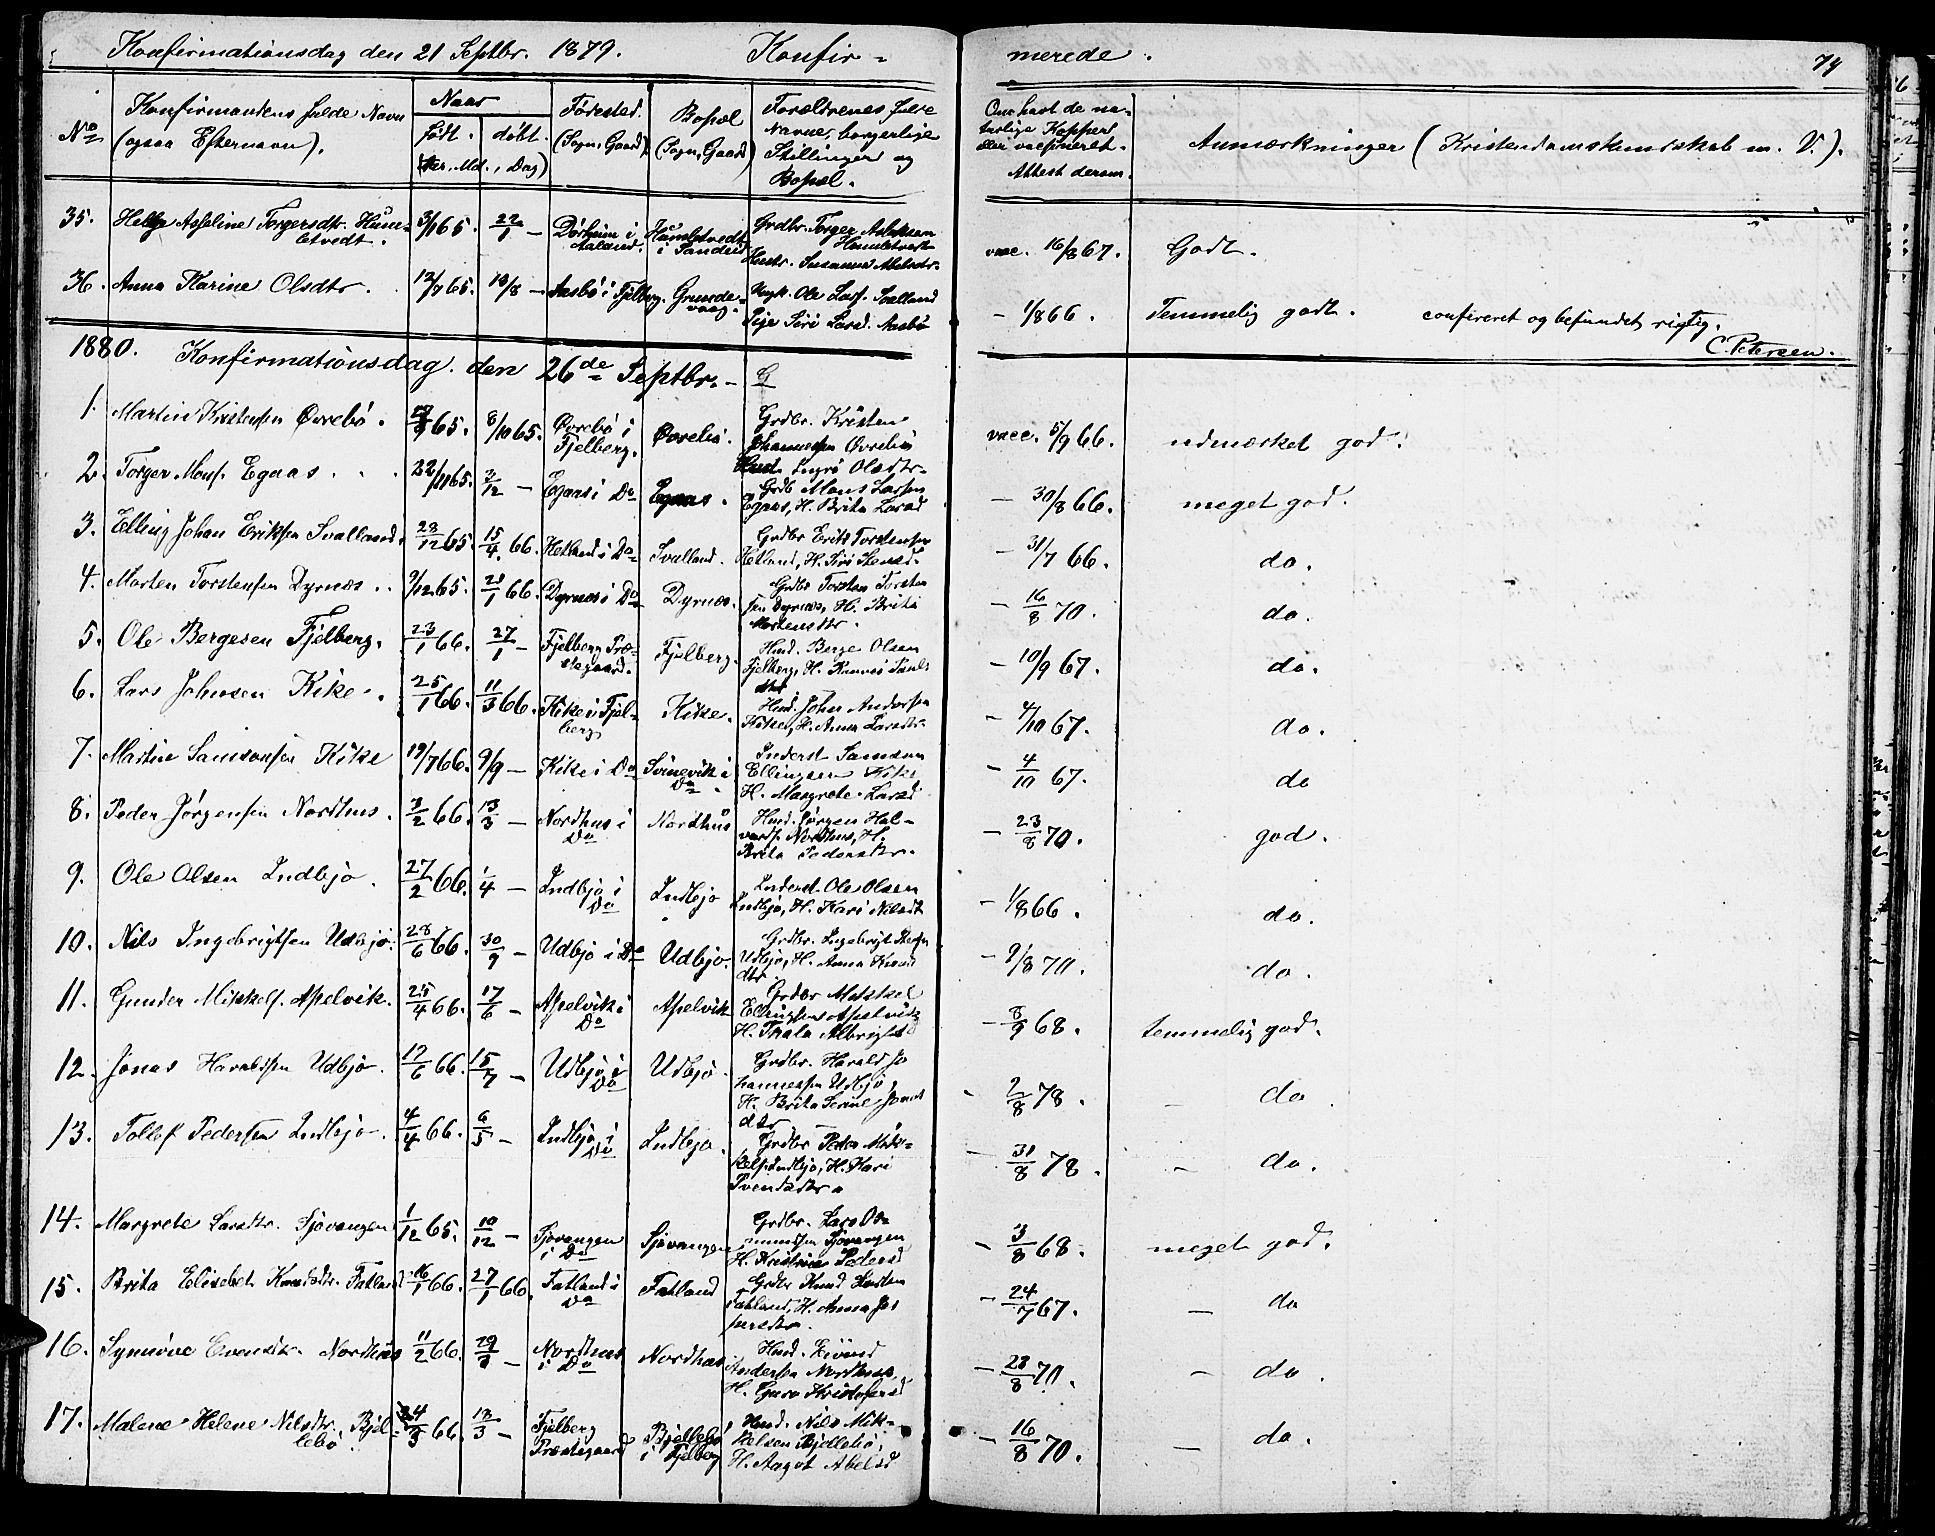 Konfirmationsdag den 21 Septbr. 1879. Konfir- merede. 74
No Konfirmantens fulde Navn (ogsaa Efternavn). Naar født. døbt. (Aar, Md., Dag) Fødested. (Sogn, Gaard) Bopæl (Sogn, Gaard) Forældrenes fulde Navne, borgerlige Stillinger og Bopæl. Om havt de naturlige Kopper eller vaccineret. Attest derom. Anmærkninger (Kristendomskundskab m. V.).
35. Helga Asseline Torgersdtr. Humletvedt. 3/1 65. 22/1 — i Aaland. Humletvedt i Sandeid Grdbr. Torger Aslaksen Humletvedt Hustr. Susanna Abelsdtr. vacc. 16/8 67. Godt.
36. Anna Karine Olsdtr. 12/7 65. 13/8 — Aasbø i Fjelberg. Grundevaag. Ungk. Ole Lars. Svalland Pige Siri Larsd. Aasbø — 1/8 66. Temmelig godt. confireret og befundet rigtig. C. Petersen.
1880. Konfirmationsdag den 26de Septbr. —
1. Martin Kristensen Øvrebø. 65. 8/10 65. Øvrebø i Fjelberg. Øvrebø. Grdbr. Kristen Johannessen Øvrebø Hust. Ingrø Olsdtr. vacc. 5/9 66. udmærket god.
2. Torger Mons. Egaas. 22/11 65. 3/12 — Egaas i Do Egaas. Grdb Mons Larsen Egaas, H. Brita Larsd — 30/8 66. meget god.
3. Elling Johan Eriksen Svalland. 28/12 65. 15/4. 66. Hetland i Do Svalland. Grdbr Erik Torstensen Hetland, H. Siri Stensd. — 31/7 66. do.
4. Morten Torstensen Dyrnæs.. 9/12 65. 21/1 66. Dyrnæs i Do Dyrnæs. Grdbr Torsten Torstensen Dyrnæs, H. Brita Mortensdtr. — 16/8 70. do.
5. Ole Bergesen Fjelberg. 23/1 66. 27/1 — Fjelberg Præstegaard. Fjelberg. Husd. Berge Olsen Fjelberg, H. — 10/9 67. do.
6. Lars Johnsen Kike. 25/1 66. 11/3 66. Kike i Fjelberg Kike. Husd. John Andersen Kike, H. Anna Larsdtr. — 4/10 67. do.
7. Martin Samsonsen Kike 19/7 66. 9/9 — Kike i Do Svinevik i Do. Inderst Samson Ellingsen Kike H. Margrete Larsd — 4/10 67. do
8. Peder Jørgensen Nordhus. 3/2 66. 13/3 — Nordhus i Do Nordhus Husd. Jørgen Halvards. Nordhus, H. Brita Pedersdtr. — 23/8 70. god.
9. Ole Olsen Indbjo. 27/2 66. 1/4 — Indbjo i Do Indbjo. Inderst. Ole Olsen Indbjo, H. Kari Nilsdt — 1/8 66. do.
10. Nils Ingebrigtsen Udbjo. 28/6 66. 30/9 — Udbjo i Do Udbjo. Grdbr. Ingebrigt Udbjo, H. Anna Knudsdtr — 9/8 70. do.
11. Gunder Mikkels. Apelvik. 25/4 66. 17/6 — Apelvik i Do Apelvik Grdbr Mikkel Ellingsen Apelvik H. Thala Albrigtsd — 3/9 68. temmelig god.
12. Jonas Haraldsen Udbjo. 17/6 66. 15/7 — Udbjo i Do Udbjo. Grdbr. Harald Johannessen Udbjo, H. Brita Serine Jonasdtr — 2/8 78. — do
13. Tollef Pedersen Indbjo. 4/4 66. 6/5 — Indbjo, i Do Indbjo. Grdbr Peder Mikkels. Indbjo, H. Kari Svendsdtr. — 31/8 78. — do.
14. Margrete Larsdtr. Sjovangen 1/12 65. 10/12 — Sjovangen i Do Sjovangen Grdbr. Lars Osmundsen Sjovangen H. Kristine Pedersd — 3/8 68. meget god.
15. Brita Elisebet Knudsdtr. Fatland 16/1 66. 27/1 66. Fatland i Do Fatland Grdbr Knud Fatland, H. Anna Jespersdtr. — 24/7 67. — do
16. Synnøve Eivindsdtr. Nordhus 11/2 66. 29/3 — Nordhus i Do Nordhus Husd. Eivind Andersen Nordhus, H. Guro Kristofersd — 23/8 70. — do.
17. Malene Helene Nilsdtr. Bjellebø. 24/3 66. 13/3 — Fjelberg Præstegaard Bjellebø i Fjelberg Husd. Nils Mikkelsen Bjellebø, H. Aagot Abelsd — 16/8 70. — do.